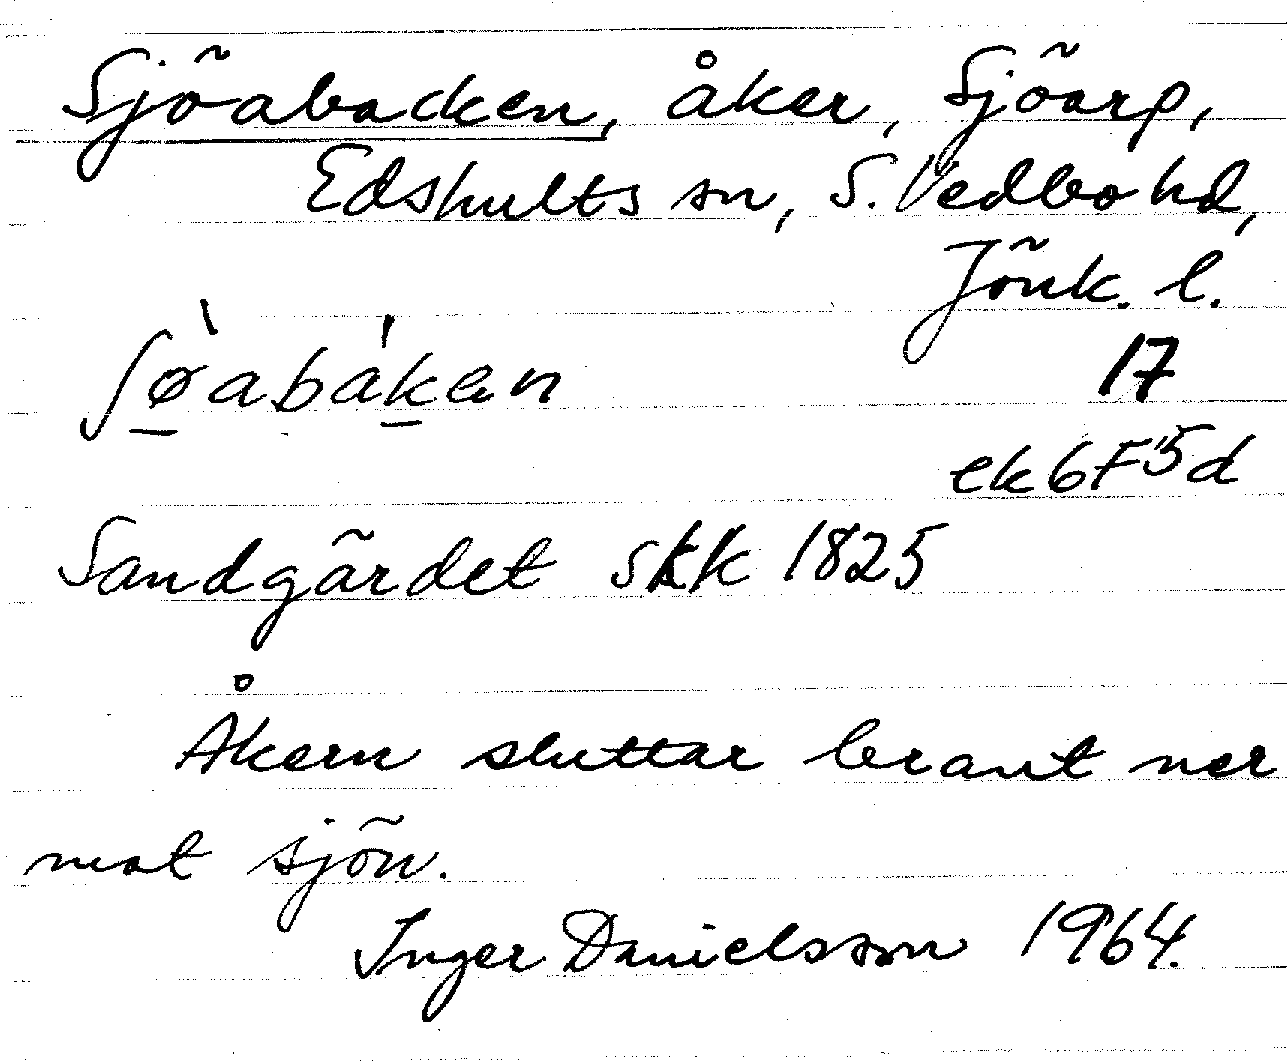 Sjöabacken, åker, Sjöarp,
Edshults sn, S. Vedbo hd,
Jönk. l.
ʃø̀abákan
17
ek 6F 5d
Sandgärdet skk 1825
Åkern sluttar brant ner
mot sjön.
Inger Danielsson 1964.